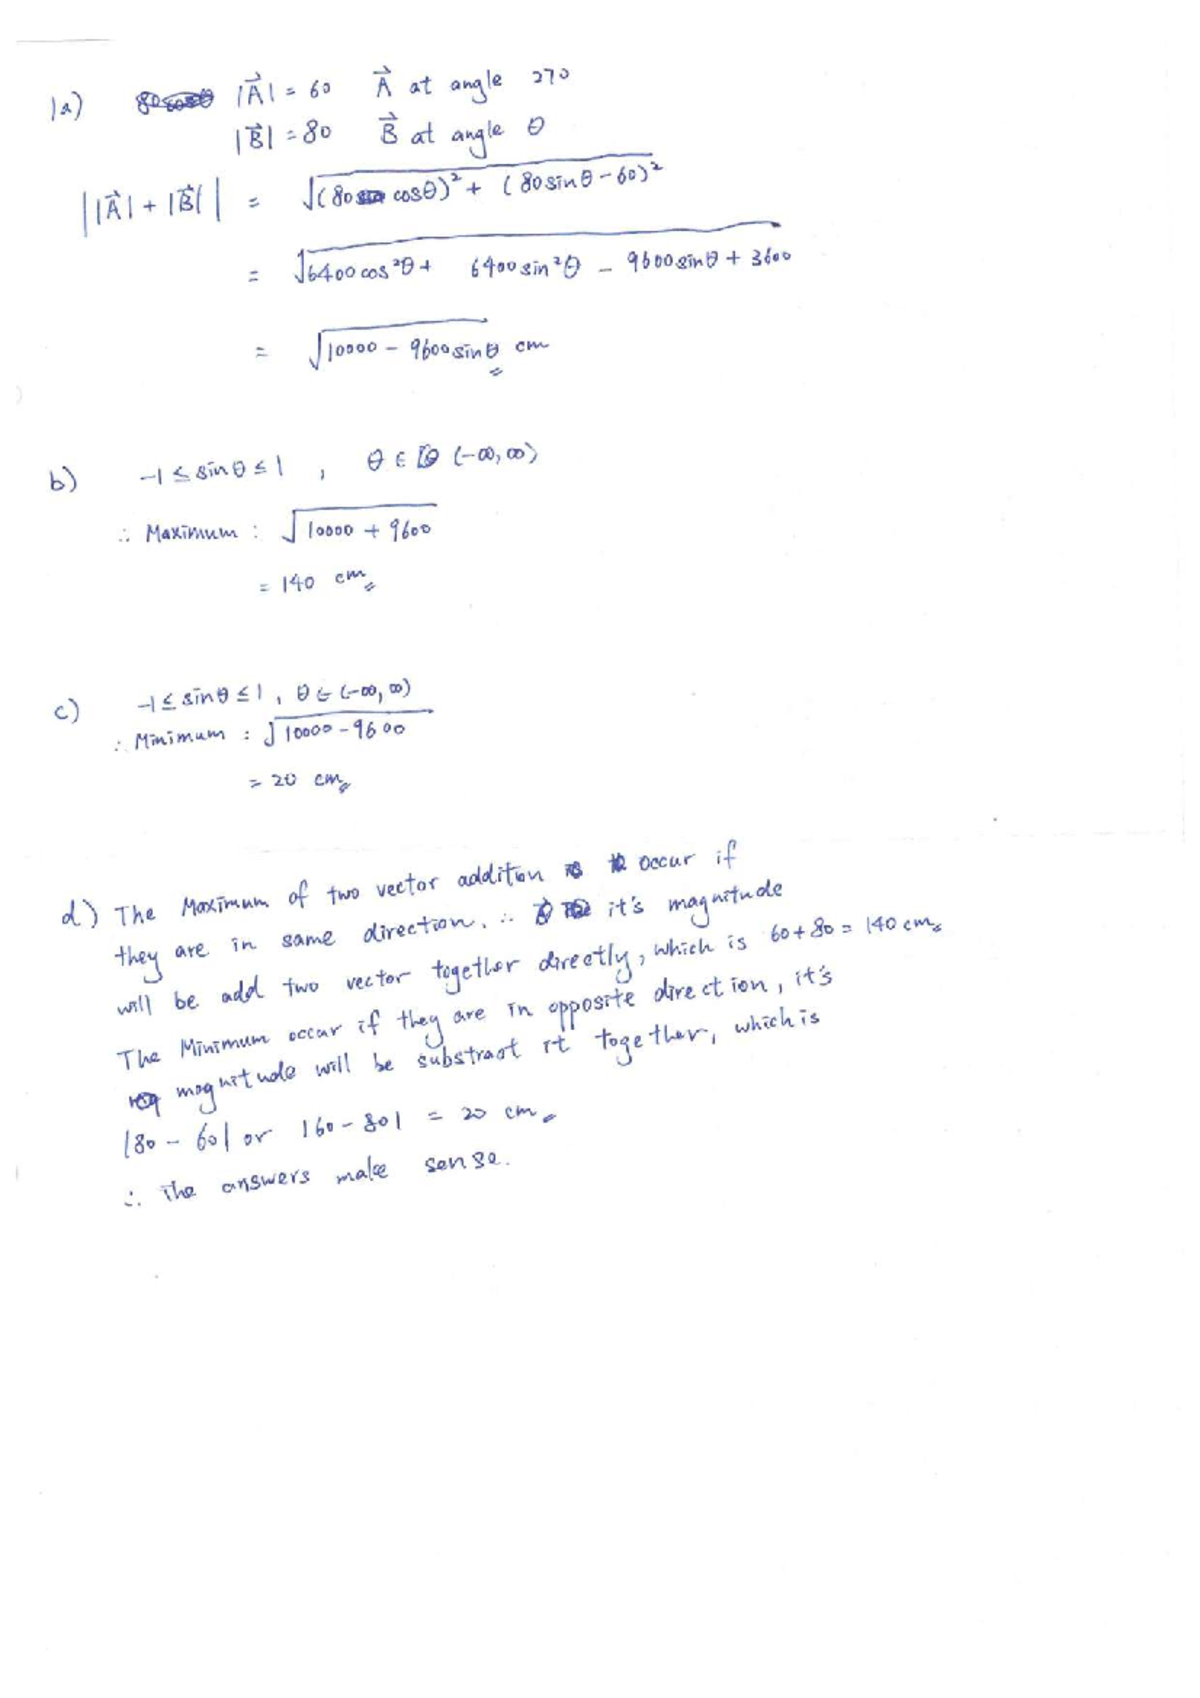 1a) |A⃗| = 60 A⃗ at angle 270
|B⃗| = 80 B⃗ at angle θ
||A⃗| + |B⃗|| = √((80 cosθ)² + (80sinθ-60)²)
= √(6400cos²θ + 6400sin²θ - 9600sinθ + 3600)
= √(10000 - 9600sinθ) cm
b) -1 ≤ sinθ ≤ 1 , θ ∈ (-∞, ∞)
∴ Maximum : √(10000 + 9600)
= 140 cm
c) -1 ≤ sinθ ≤ 1 , θ ∈ (-∞, ∞)
∴ Minimum : √(10000 - 9600)
= 20 cm
d) The Maximum of two vector addition occur if
they are in same direction. ∴ it's magnitude
will be add two vector together directly, which is 60+80 = 140 cm.
The Minimum occur if they are in opposite direction, it's
magnitude will be substract it together, which is
|80 - 60| or |60 - 80| = 20 cm.
∴ The answers make sense.